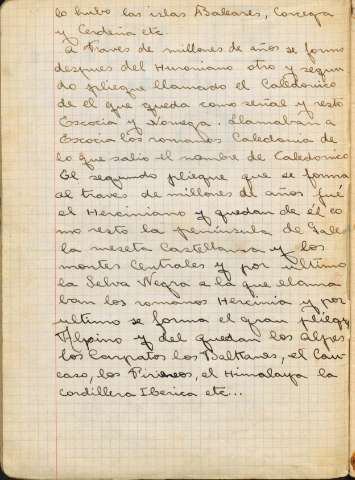 lo hubo las islas Baleares, Corcega
y Cerdeña etc
A traves de millones de años se formo
despues del Huroniano otro y segun
do pliegue llamado el Caledonico
de el que queda como señal y resto
Escocia y Noruega. Llamaban a
Escocia los romanos Caledonia de
lo que salio el nombre de Caledonico
El segundo pliegue que se forma
al traves de millones de años fué
el Herciniano y quedan de él co
mo resto la peninsula de Gales
la meseta Castellana y los
montes Centrales y por ultimo
la Selva Negra a la que llama
ban los romanos Hercinia y por
ultimo se forma el gran pliegue
Alpino y del quedan los Alpes
los Carpatos los Balkanes, el Cau
caso, los Pirineos, el Himalaya la
cordillera Iberica etc...